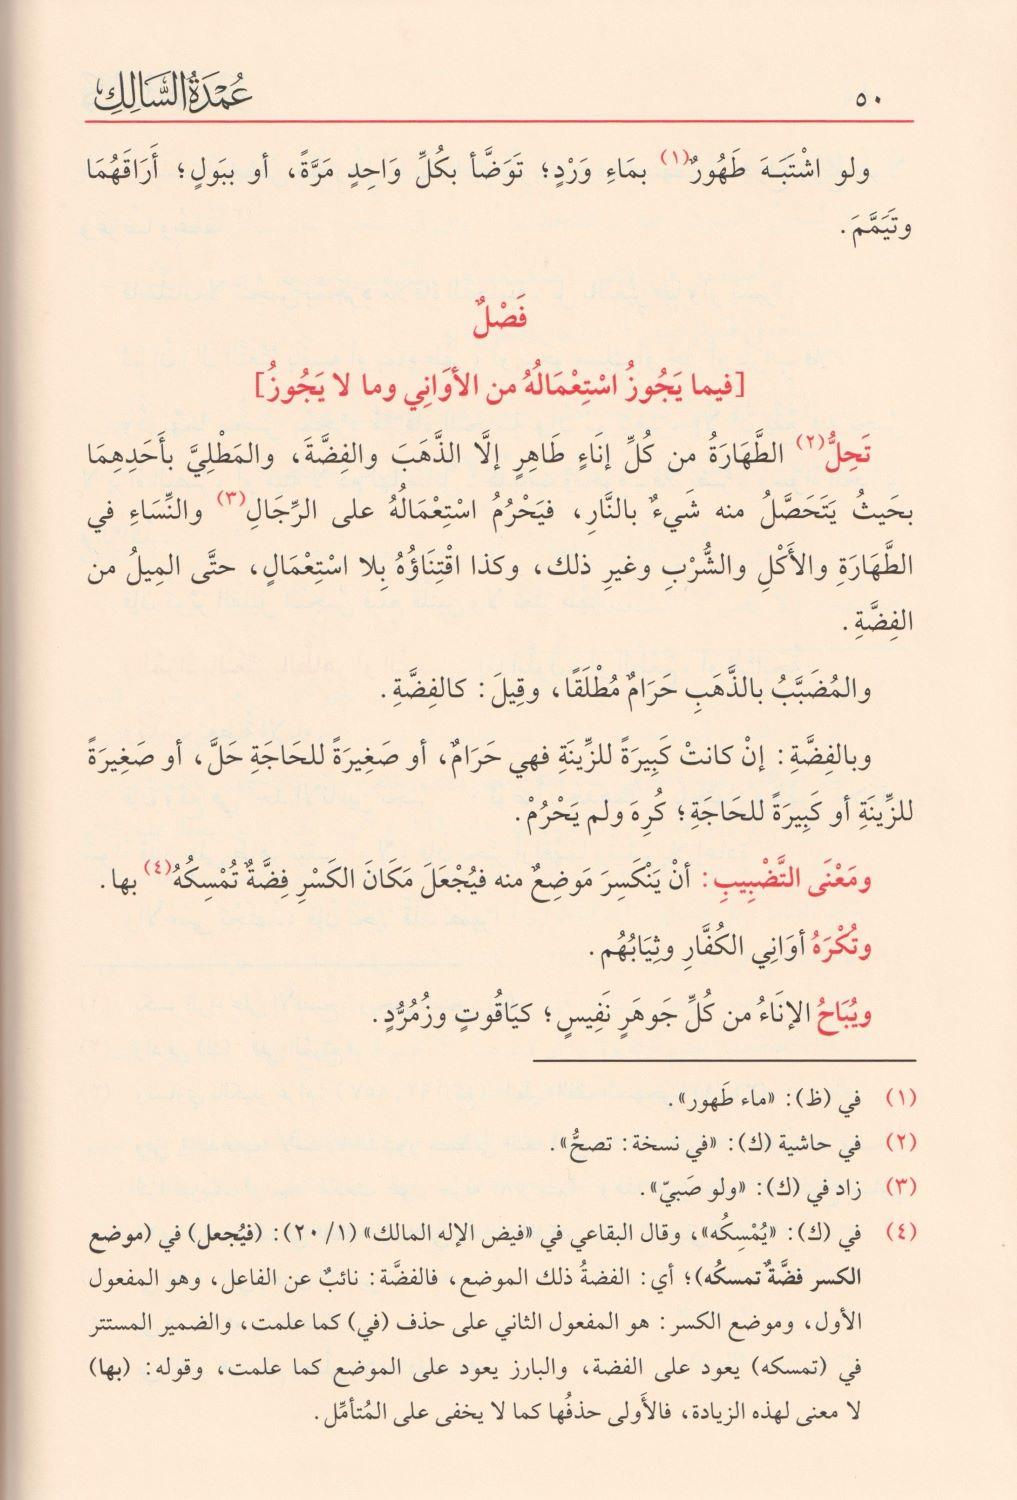 ٥٠ عُمْدَةُ السَّالِكِ
ولو اشْتَبَهَ طَهُورٌ(١) بمَاءِ وَرْدٍ؛ تَوَضَّأ بكُلِّ وَاحِدٍ مَرَّةً، أو ببَولٍ؛ أَرَاقَهُمَا
وتَيَمَّمَ.
فَصْلٌ
[فيما يَجُوزُ اسْتِعْمَالُهُ من الأوَانِي وما لا يَجُوزُ]
تَحِلُّ(٢) الطَّهَارَةُ من كُلِّ إنَاءٍ طَاهِرٍ إلَّا الذَّهَبَ والفِضَّةَ، والمَطْلِيَّ بأَحَدِهِمَا
بحَيثُ يَتَحَصَّلُ منه شَيءٌ بالنَّارِ، فيَحْرُمُ اسْتِعْمَالُهُ على الرِّجَالِ(٣) والنِّسَاءِ في
الطَّهَارَةِ والأَكْلِ والشُّرْبِ وغيرِ ذلك، وكذا اقْتِنَاؤُهُ بِلا اسْتِعْمَالٍ، حتَّى المِيلُ من
الفِضَّةِ.
والمُضَبَّبُ بالذَّهَبِ حَرَامٌ مُطْلَقًا، وقِيلَ: كالفِضَّةِ.
وبالفِضَّةِ: إنْ كانتْ كَبِيرَةً للزِّينَةِ فهي حَرَامٌ، أو صَغِيرَةً للحَاجَةِ حَلَّ، أو صَغِيرَةً
للزِّينَةِ أو كَبِيرَةً للحَاجَةِ؛ كُرِهَ ولم يَحْرُمْ.
ومَعْنَى التَّضْبِيبِ: أنْ يَنْكَسِرَ مَوضِعٌ منه فيُجْعَلَ مَكَانَ الكَسْرِ فِضَّةٌ تُمْسِكُهُ(٤) بها.
وتُكْرَهُ أوَانِي الكُفَّارِ وثِيَابُهُم.
ويُبَاحُ الإنَاءُ من كُلِّ جَوهَرٍ نَفِيسٍ؛ كيَاقُوتٍ وزُمُرُّدٍ.
(١) في (ظ): «ماء طَهور».
(٢) في حاشية (ك): «في نسخة: تصحُّ».
(٣) زاد في (ك): «ولو صَبيّ».
(٤) في (ك): «يُمْسِكُه»، وقال البقاعي في «فيض الإله المالك» (١/ ٢٠): (فيُجعل) في (موضع
الكسر فضَّةٌ تمسكُه)؛ أي: الفضةُ ذلك الموضع، فالفضَّة: نائبٌ عن الفاعل، وهو المفعول
الأول، وموضع الكسر: هو المفعول الثاني على حذف (في) كما علمت، والضمير المستتر
في (تمسكه) يعود على الفضة، والبارز يعود على الموضع كما علمت، وقوله: (بها)
لا معنى لهذه الزيادة، فالأَولى حذفُها كما لا يخفى على المُتأمِّل.